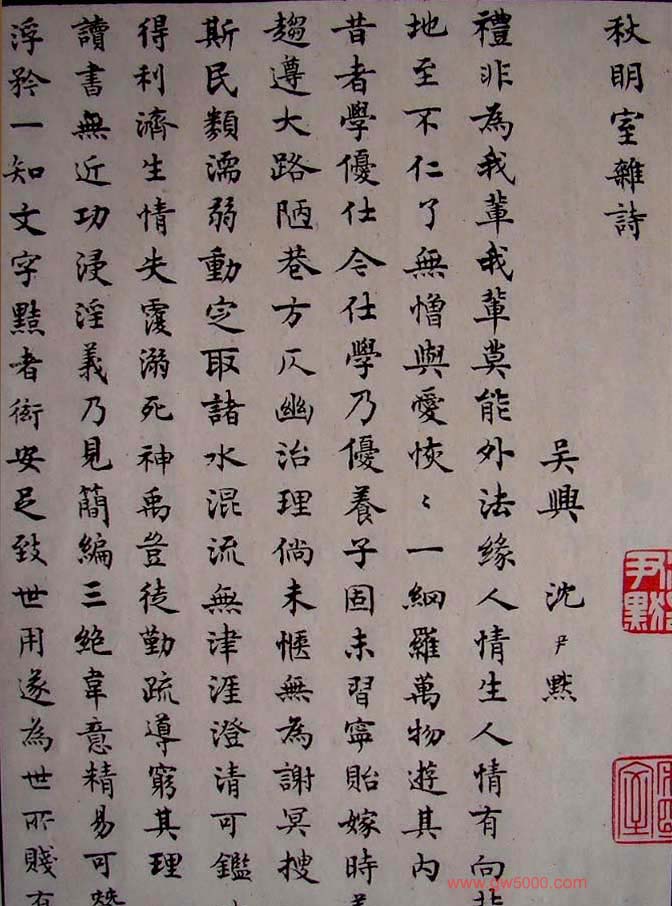 秋明室雜詩
吴興 沈尹默
禮非為我輩我輩莫能外法緣人情生人情有向背
地至不仁了無憎與愛恢〻一網羅萬物遊其内
昔者學優仕今仕學乃優養子固未習寧貽嫁時
趨遵大路陋巷方仄幽治理倘未愜無為謝冥搜
斯民類濡弱動定取諸水混流無津涯澄清可鑑
得利濟生情失覆溺死神禹豈徒勤疏導窮其理
讀書無近功浸淫義乃見蕳編三絶韋意精易可
浮矜一知文字黠者衒安足致世用遂為世所賤有
尹默
www.qw5000.com